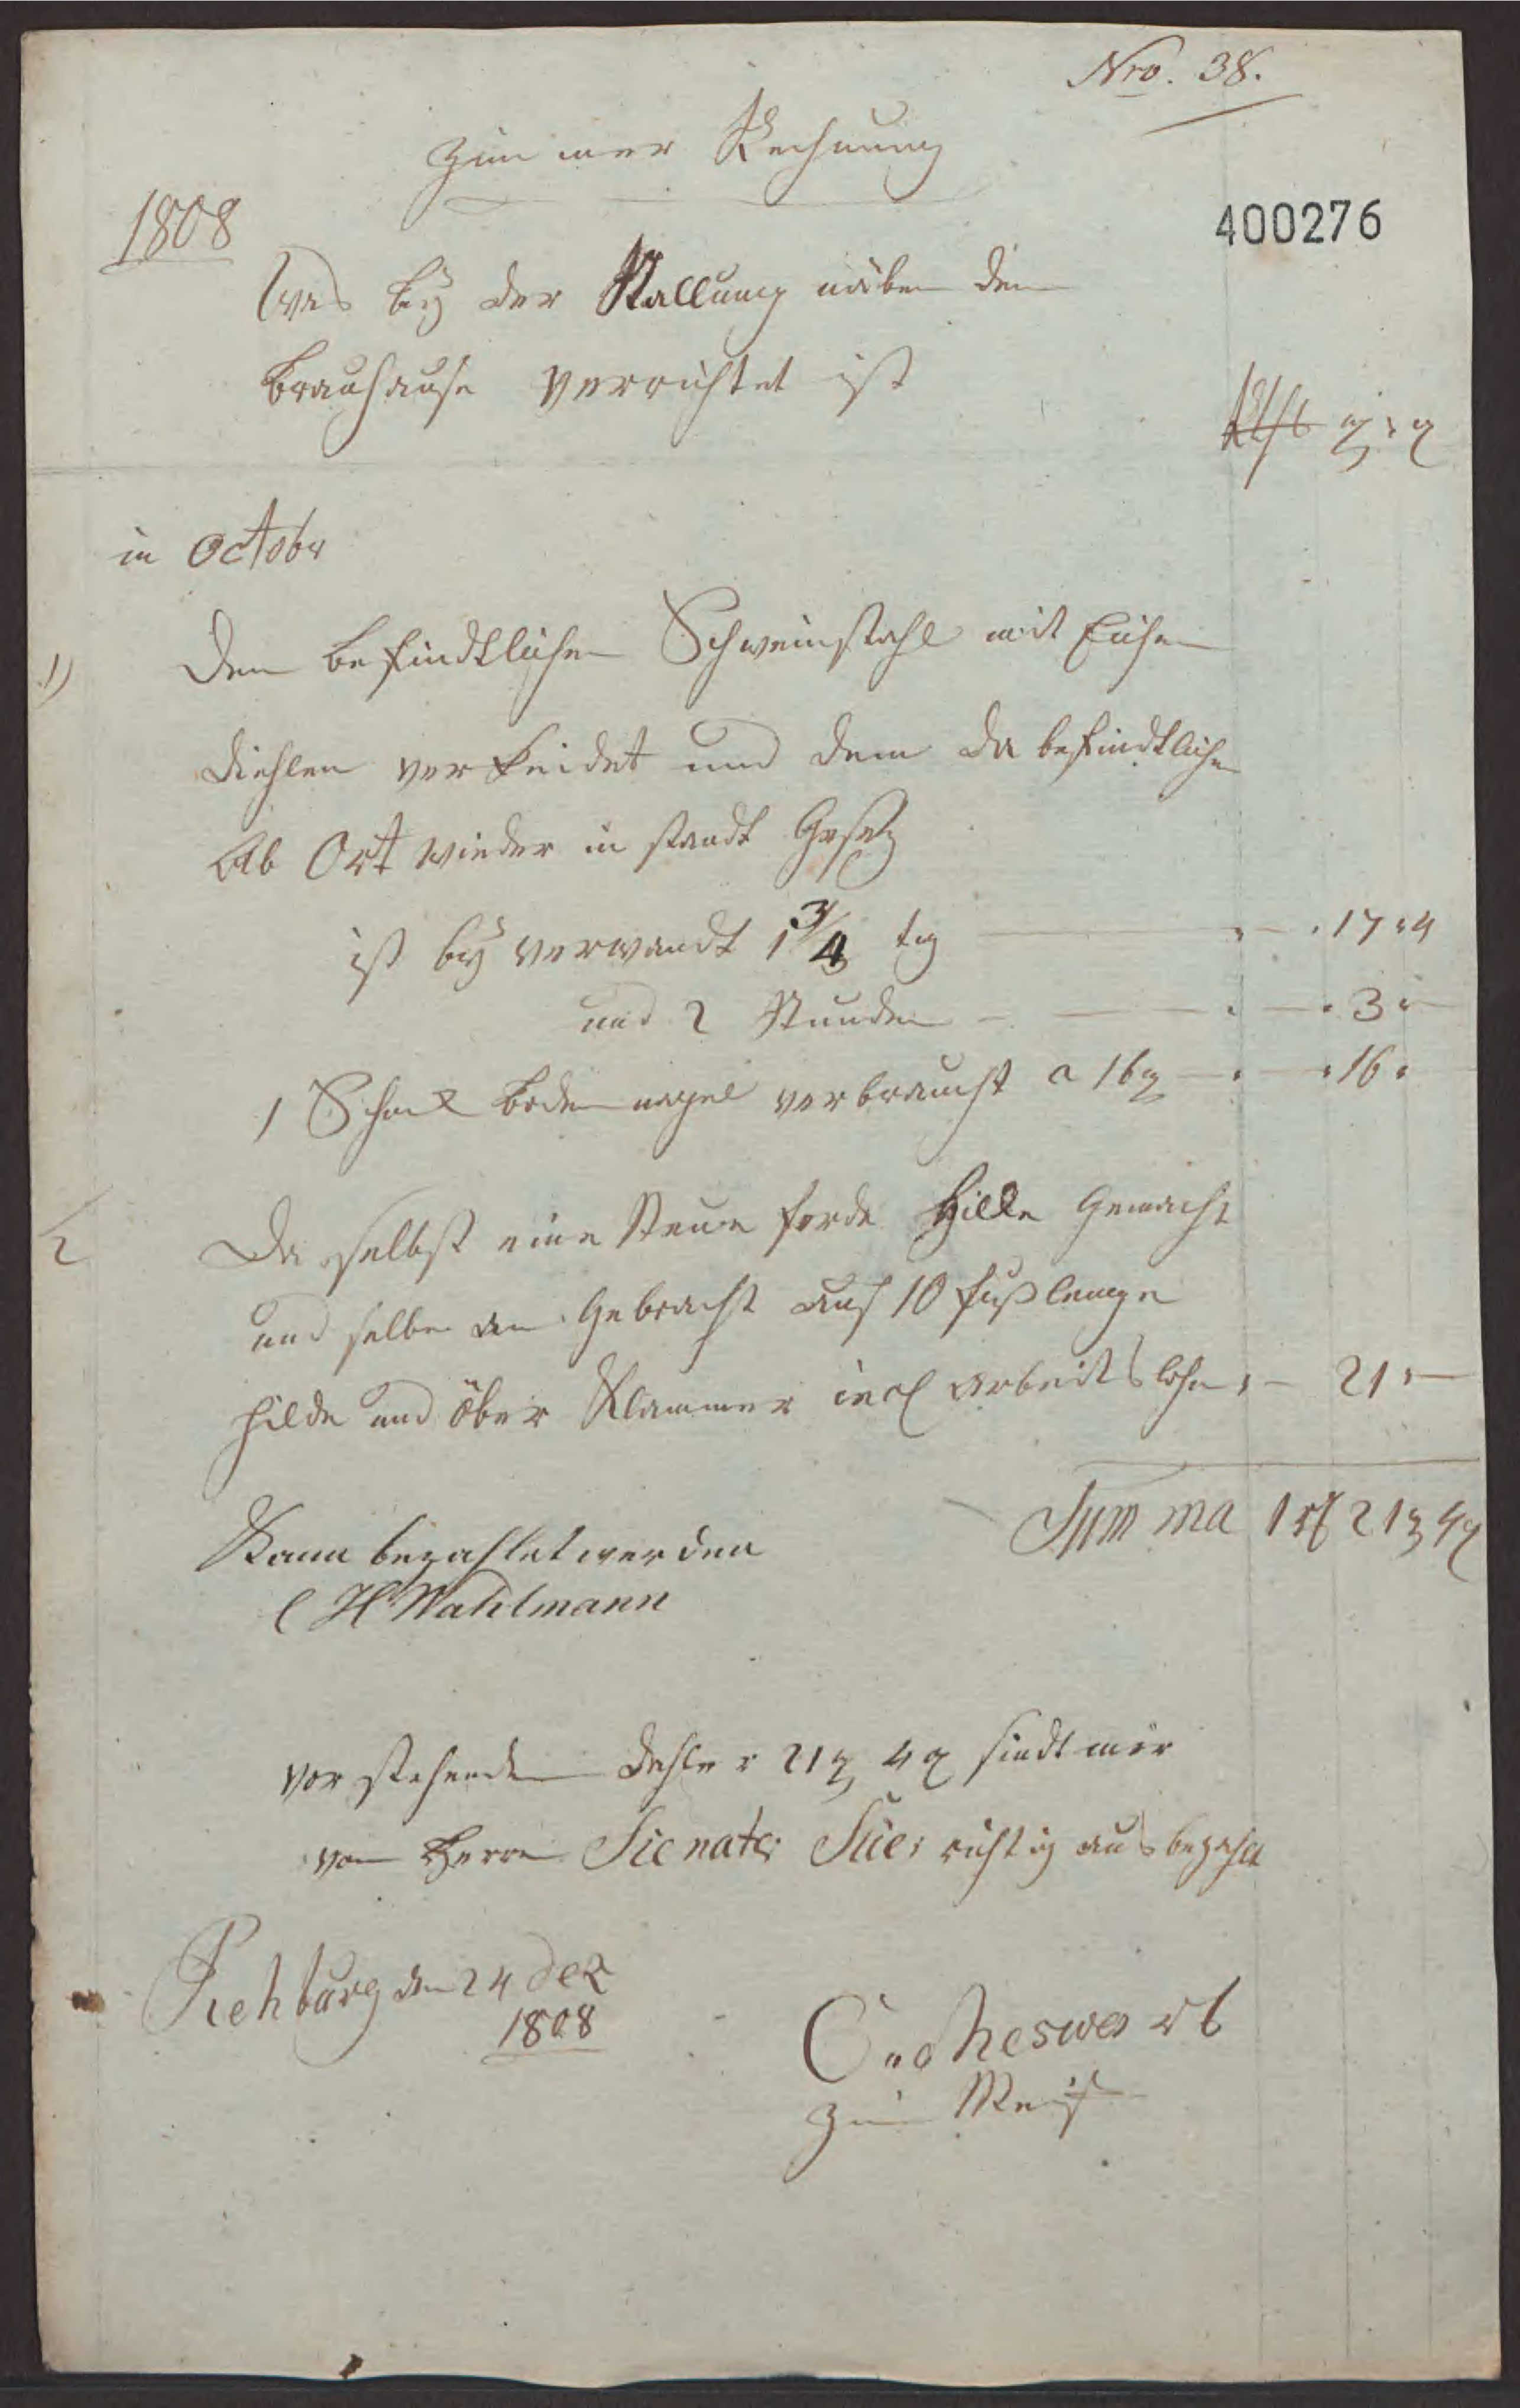 Nro. 38.
Zimmer Rechnung
1808
400276
Was bey der Stallung näben den
Brauhause verrichtet ist
in Octobr
1)
Den befindtlichen Schweinstahl mit Eichen
Diehlen verkleidet und dem da befindtlichen
Ab Ort wieder in standt Gesetz
ist bey verwandt 1 3/4 tag 17 4
und 2 Stunden 3
1 Schock Boden nagel verbraucht a 16 16
2
Da selbst eine Neue ferde Hille Gemacht
und selbe an Gebracht auf 10 fuß lange
hilde und über Klammer incl arbeitslohn 21
Summa 1 rtl 21 g 4 d
Kann bezahlet werden
C H Wahlmann
Vorstehenden Dahler 21 g 4 d sindt mir
von Herrn Sienater richtig aus bezahlt
Rehburg den 24 Dez
1808
Zim Meist